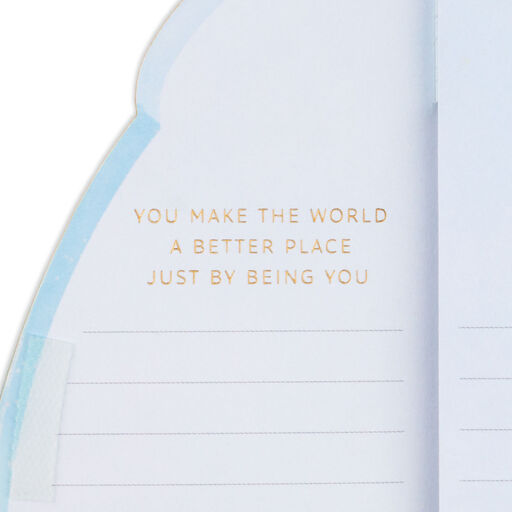 YOU MAKE THE WORLD
A BETTER PLACE
JUST BY BEING YOU